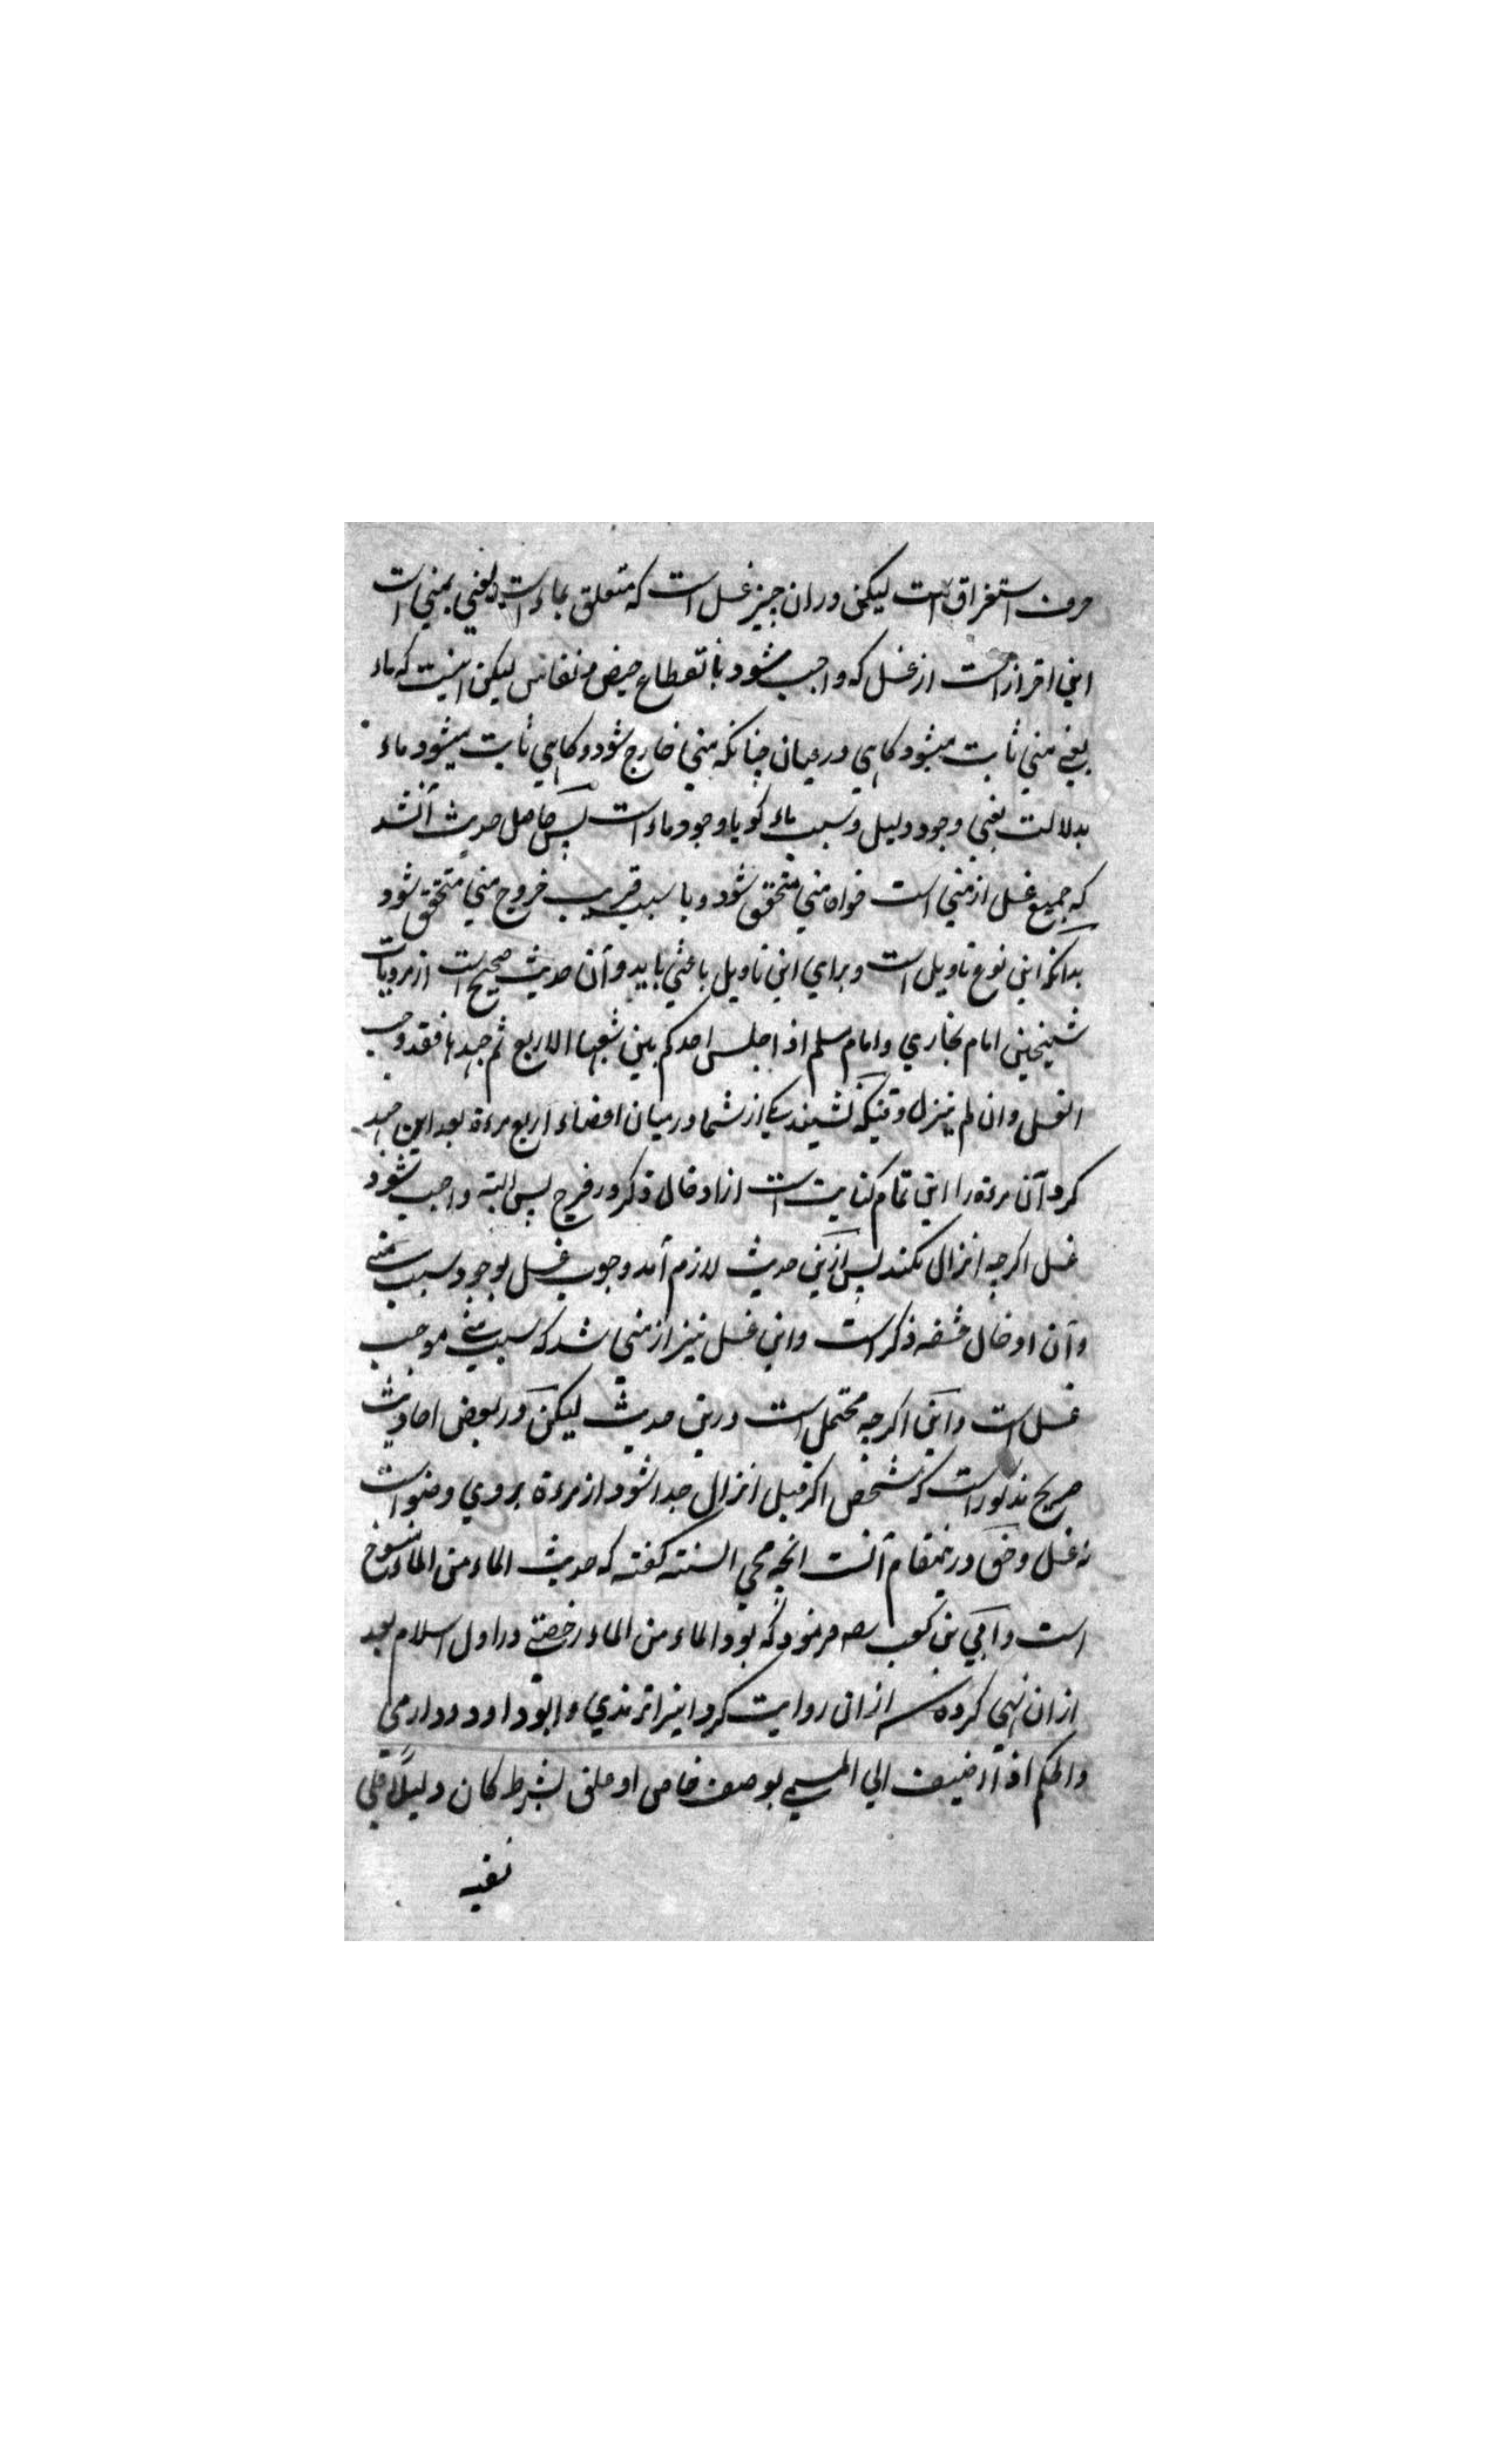 حرف استغراق است لیکن دران چیز غسل است که متعلق بماء است یعنی بمنی است
این احتراز است از غسل که واجب شود بانقطاع حیض و نفاس لیکن اینست که ماء
یعنی منی ثابت میشود کاهی درعیان چنانکه منی خارج شود و کاهی ثابت میشود ماء
بدلالت یعنی وجود دلیل و سبب ماء کویا وجود ماء است پس حاصل حدیث آنشد
که جمیع غسل از منی است خواه منی متحقق شود و یا سبب قریب خروج منی متحقق شود
بدانکه این نوع تاویل است و برای این تاویل باعثی باید و آن حدیث صحیح است از مرویات
شیخین امام بخاری و امام مسلم اذا جلس احدکم بین شعبها الاربع ثم جهدها فقد وجب
الغسل وان لم ینزل وقتیکه نشیند یکی از شما درمیان اعضاء اربع مرءة بعد ازین جهد
کرد آن مرءة را این تمام کنایت است از ادخال ذکر در فرج پس البته واجب شود
غسل اکرچه انزال نکند پس ازین حدیث لازم آمد وجوب غسل بوجود سبب منی
و آن ادخال حشفه ذکر است و این غسل نیز از منی شد که سبب منی موجب
غسل است و این اکرچه محتمل است درین حدیث لیکن در بعض احادیث
صریح مذکور است که شخص اکر قبل انزال جدا شود از مرءة بروی وضو است
نه غسل و حق درینمقام آنست انچه محی السنته کفته که حدیث الماء من الماء منسوخ
است و ابی بن کعب رضه فرمود که بود الماء من الماء رخصتی در اول اسلام بعد
ازان نهی کرده شد ازان روایت کرد اینرا ترمذی و ابو داود و دارمی
والحکم اذا اضیف الی المسمی بوصف خاص او علق بشرط کان دلیلا علی
نفیه